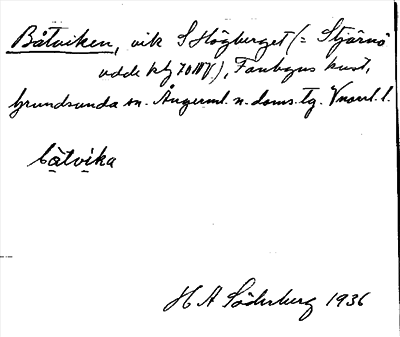 Båtviken, vik S Högberget (= Stjärnö
udde blj 70 NV), Fanbyns kust,
Grundsunda sn. Ångerml. n. doms. tg. Vnorrl. l.
båtvika
H A Söderberg 1936